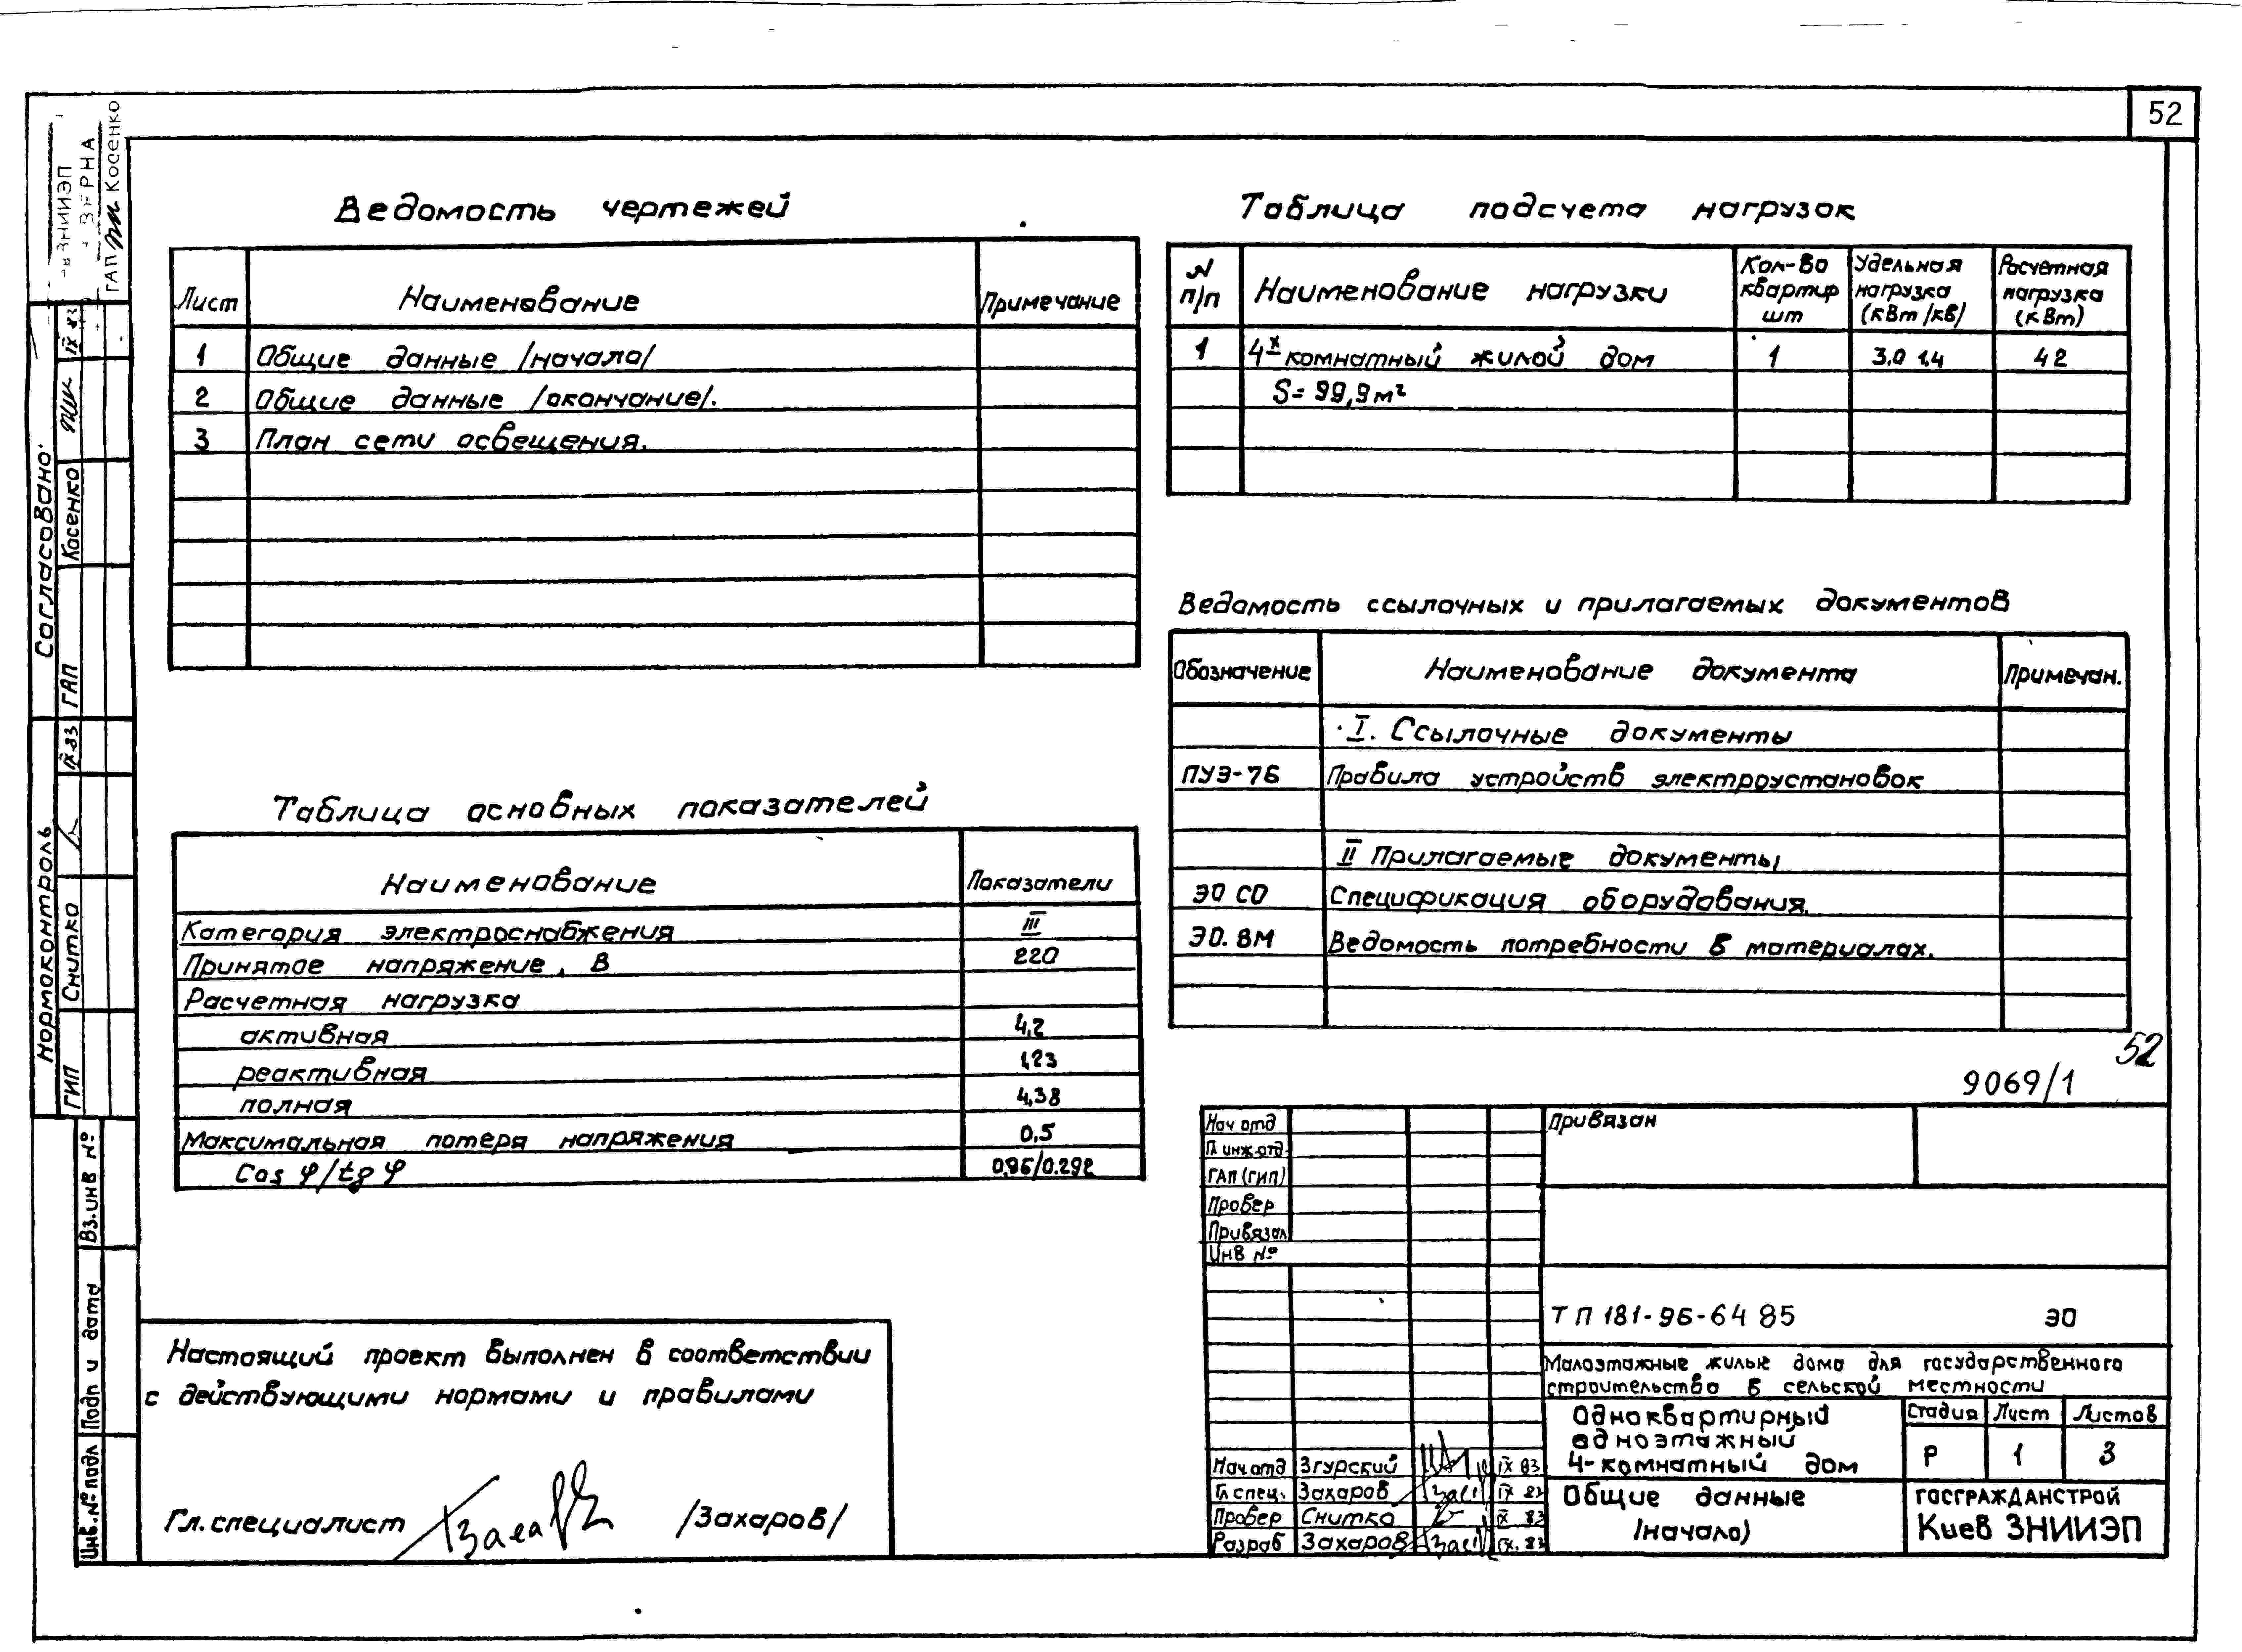 52
Ведомость чертежей
Лист Наименование Примечание
1 Общие данные /начало/
2 Общие данные /окончание/.
3 План сети освещения.
Таблица основных показателей
Наименование Показатели
Категория электроснабжения III
Принятое напряжение, В 220
Расчетная нагрузка
активная 4,2
реактивная 1,23
полная 4,38
Максимальная потеря напряжения 0.5
Cos φ/tg φ 0,96/0.292
Настоящий проект выполнен в соответствии
с действующими нормами и правилами
Гл. специалист /Захаров/
Таблица подсчета нагрузок
N п/п Наименование нагрузки Кол-во квартир шт Удельная нагрузка (кВт/кв) Расчетная нагрузка (кВт)
1 4х комнатный жилой дом 1 3.0 1.4 4 2
S = 99,9 м²
Ведомость ссылочных и прилагаемых документов
Обозначение Наименование документа Примечан.
I. Ссылочные документы
ПУЭ-76 Правила устройств электроустановок
II Прилагаемые документы
ЭО СО Спецификация оборудования.
ЭО. ВМ Ведомость потребности в материалах.
52
9069/1
Нач отд Привязан
Гл инж.отд.
ГАП (ГИП)
Провер
Привязал
Инв №
ТП 181-96-64 85 ЭО
Малоэтажные жилые дома для государственного
строительства в сельской местности
Одноквартирный
одноэтажный
4-комнатный дом
Стадия Лист Листов
Р 1 3
Общие данные
/начало)
ГОСГРАЖДАНСТРОЙ
Киев ЗНИИЭП
Нач.отд Згурский IX 83
Гл спец. Захаров IX 83
Провер Снитко IX 83
Разраб Захаров IX. 83
Согласовано:
ГАП Косенко IX 83
Нормоконтроль
ГИП Снитко IX 83
Вз.инв №
Подп и дата
Инв.№ подл
ЗНИИЭП
ВЕРНА
ГАП Косенко